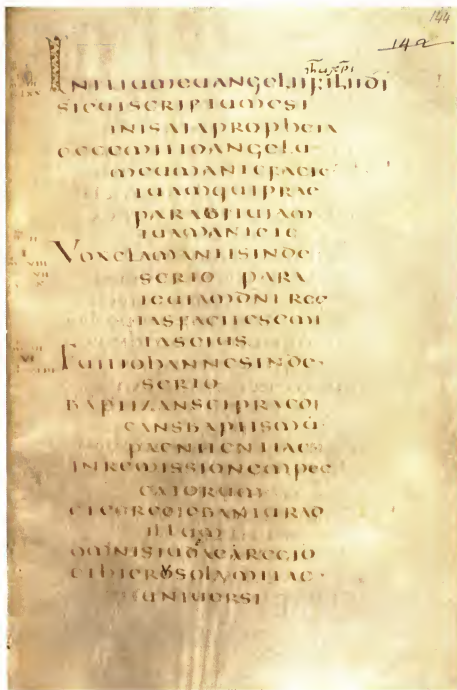 144
142
ihu xpi
INITIUMEUANGELIIFILIIDI
SICUTSCRIPTUMEST
INISAIAPROPHETA
ECCEMITTOANGELU
MEUMANTEFACIE
TUAMQUIPRAE
PARABITUIAM
TUAMANTETE
VOXCLAMANTISINDE
SERTO PARA
TEUIAMDNIREC
TASFACITESEMI
TASEIUS
FUITIOHANNESINDE
SERTO
BAPTIZANSETPRAEDI
CANSBAPTISMU
PAENITENTIAE
INREMISSIONEMPEC
CATORUM
ETEGREDIEBANTURAD
ILLUM
OMNISIUDAEAREGIO
ETHIEROSOLYMITAE
UNIUERSI